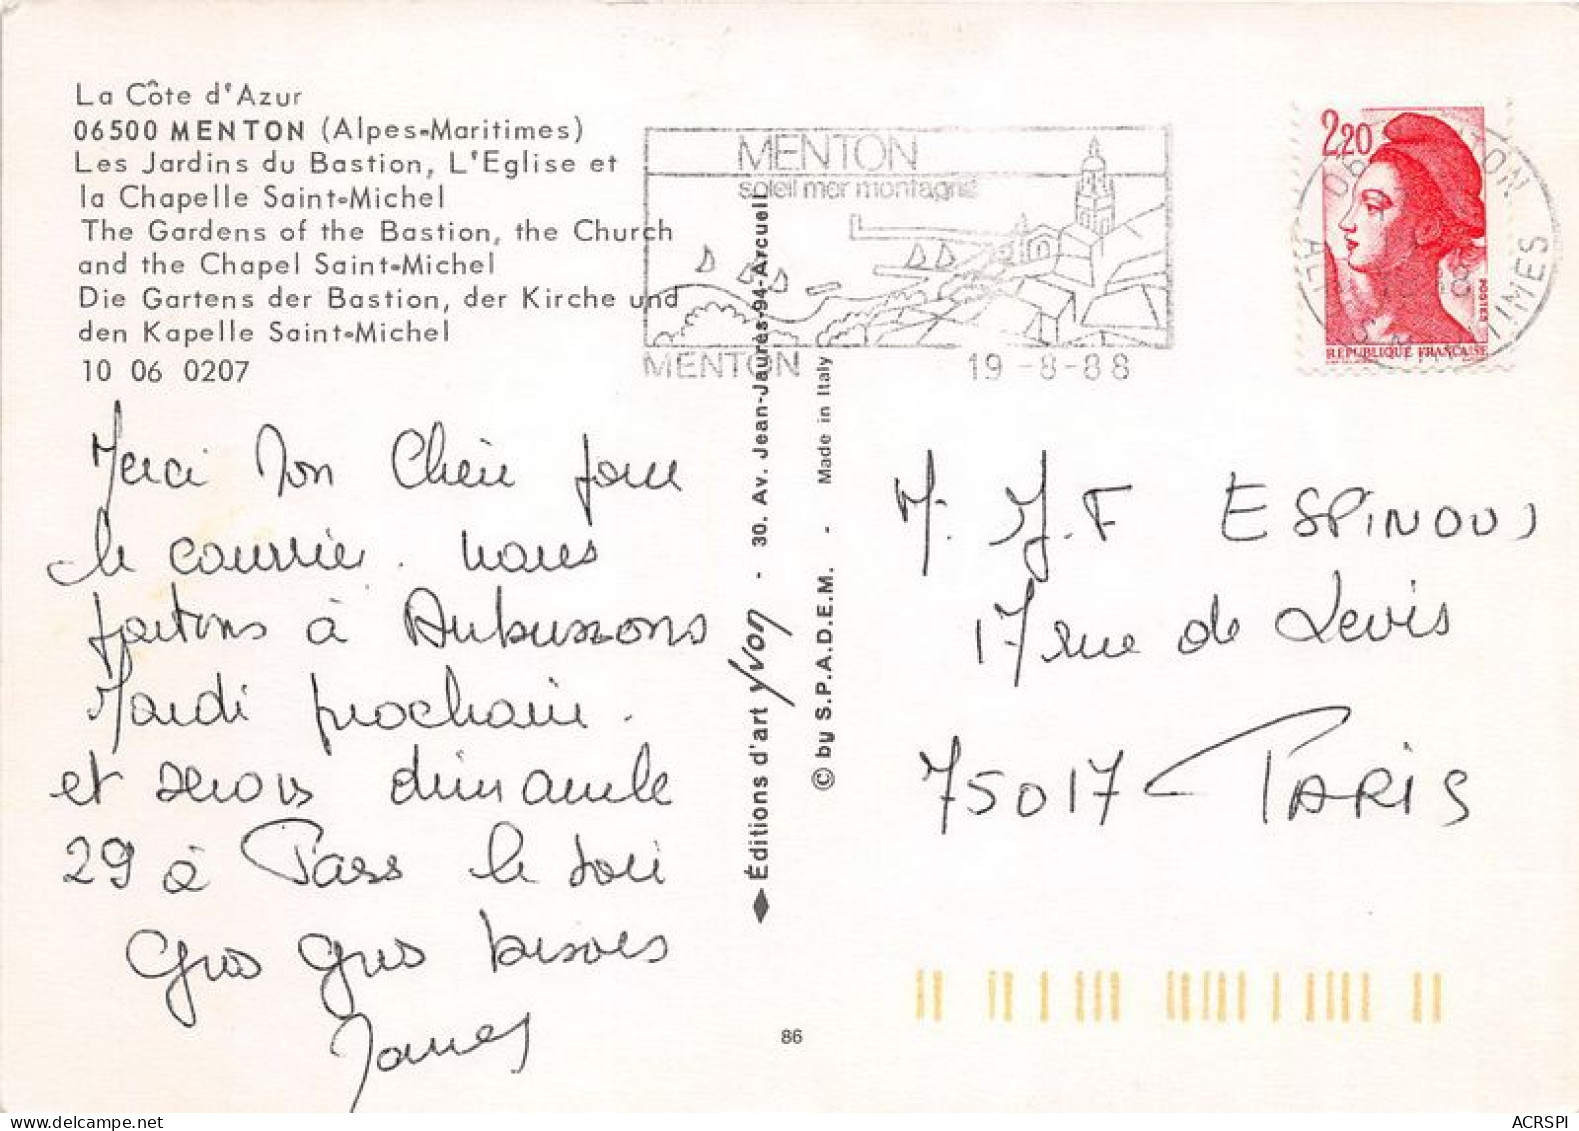 La Côte d'Azur
06500 MENTON (Alpes-Maritimes)
Les Jardins du Bastion, L'Eglise et
la Chapelle Saint-Michel
The Gardens of the Bastion, the Church
and the Chapel Saint-Michel
Die Gartens der Bastion, der Kirche und
den Kapelle Saint-Michel
10 06 0207
MENTON
soleil mer montagne
MENTON 19-8-88
2,20
POSTES
REPUBLIQUE FRANÇAISE
Merci Mon Chéri pour
le courrier. nous
partons à Aubussons
Mardi prochain.
et serons dimanche
29 à Pass le soir
Gros Gros bisous
Éditions d'art Yvon - 30. Av. Jean-Jaurès-94-Arcueil
© by S.P.A.D.E.M. - Made in Italy
86
M. J.F ESPINOUS
17 rue de Levis
75017 PARIS
ACRSPI